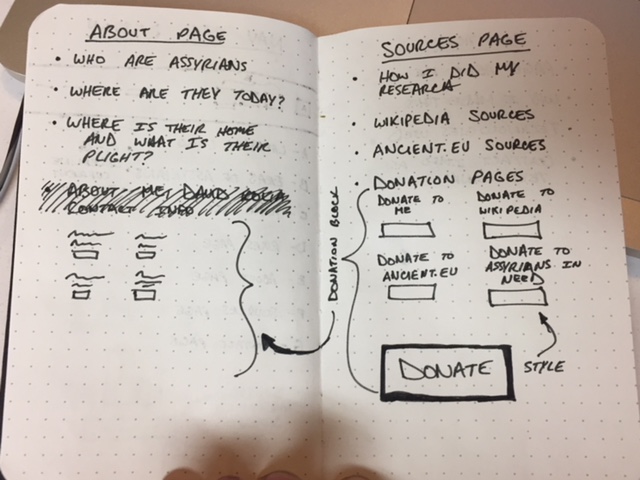 ABOUT PAGE
• WHO ARE ASSYRIANS
• WHERE ARE THEY TODAY?
• WHERE IS THEIR HOME
AND WHAT IS THEIR
PLIGHT?
ABOUT ME: DAVID
CONTACT INFO
SOURCES PAGE
• HOW I DID MY
RESEARCH
• WIKIPEDIA SOURCES
• ANCIENT.EU SOURCES
• DONATION PAGES
DONATE TO
ME
DONATE TO
WIKIPEDIA
DONATE TO
ANCIENT.EU
DONATE TO
ASSYRIANS IN
NEED
DONATION BLOCK
DONATE
STYLE